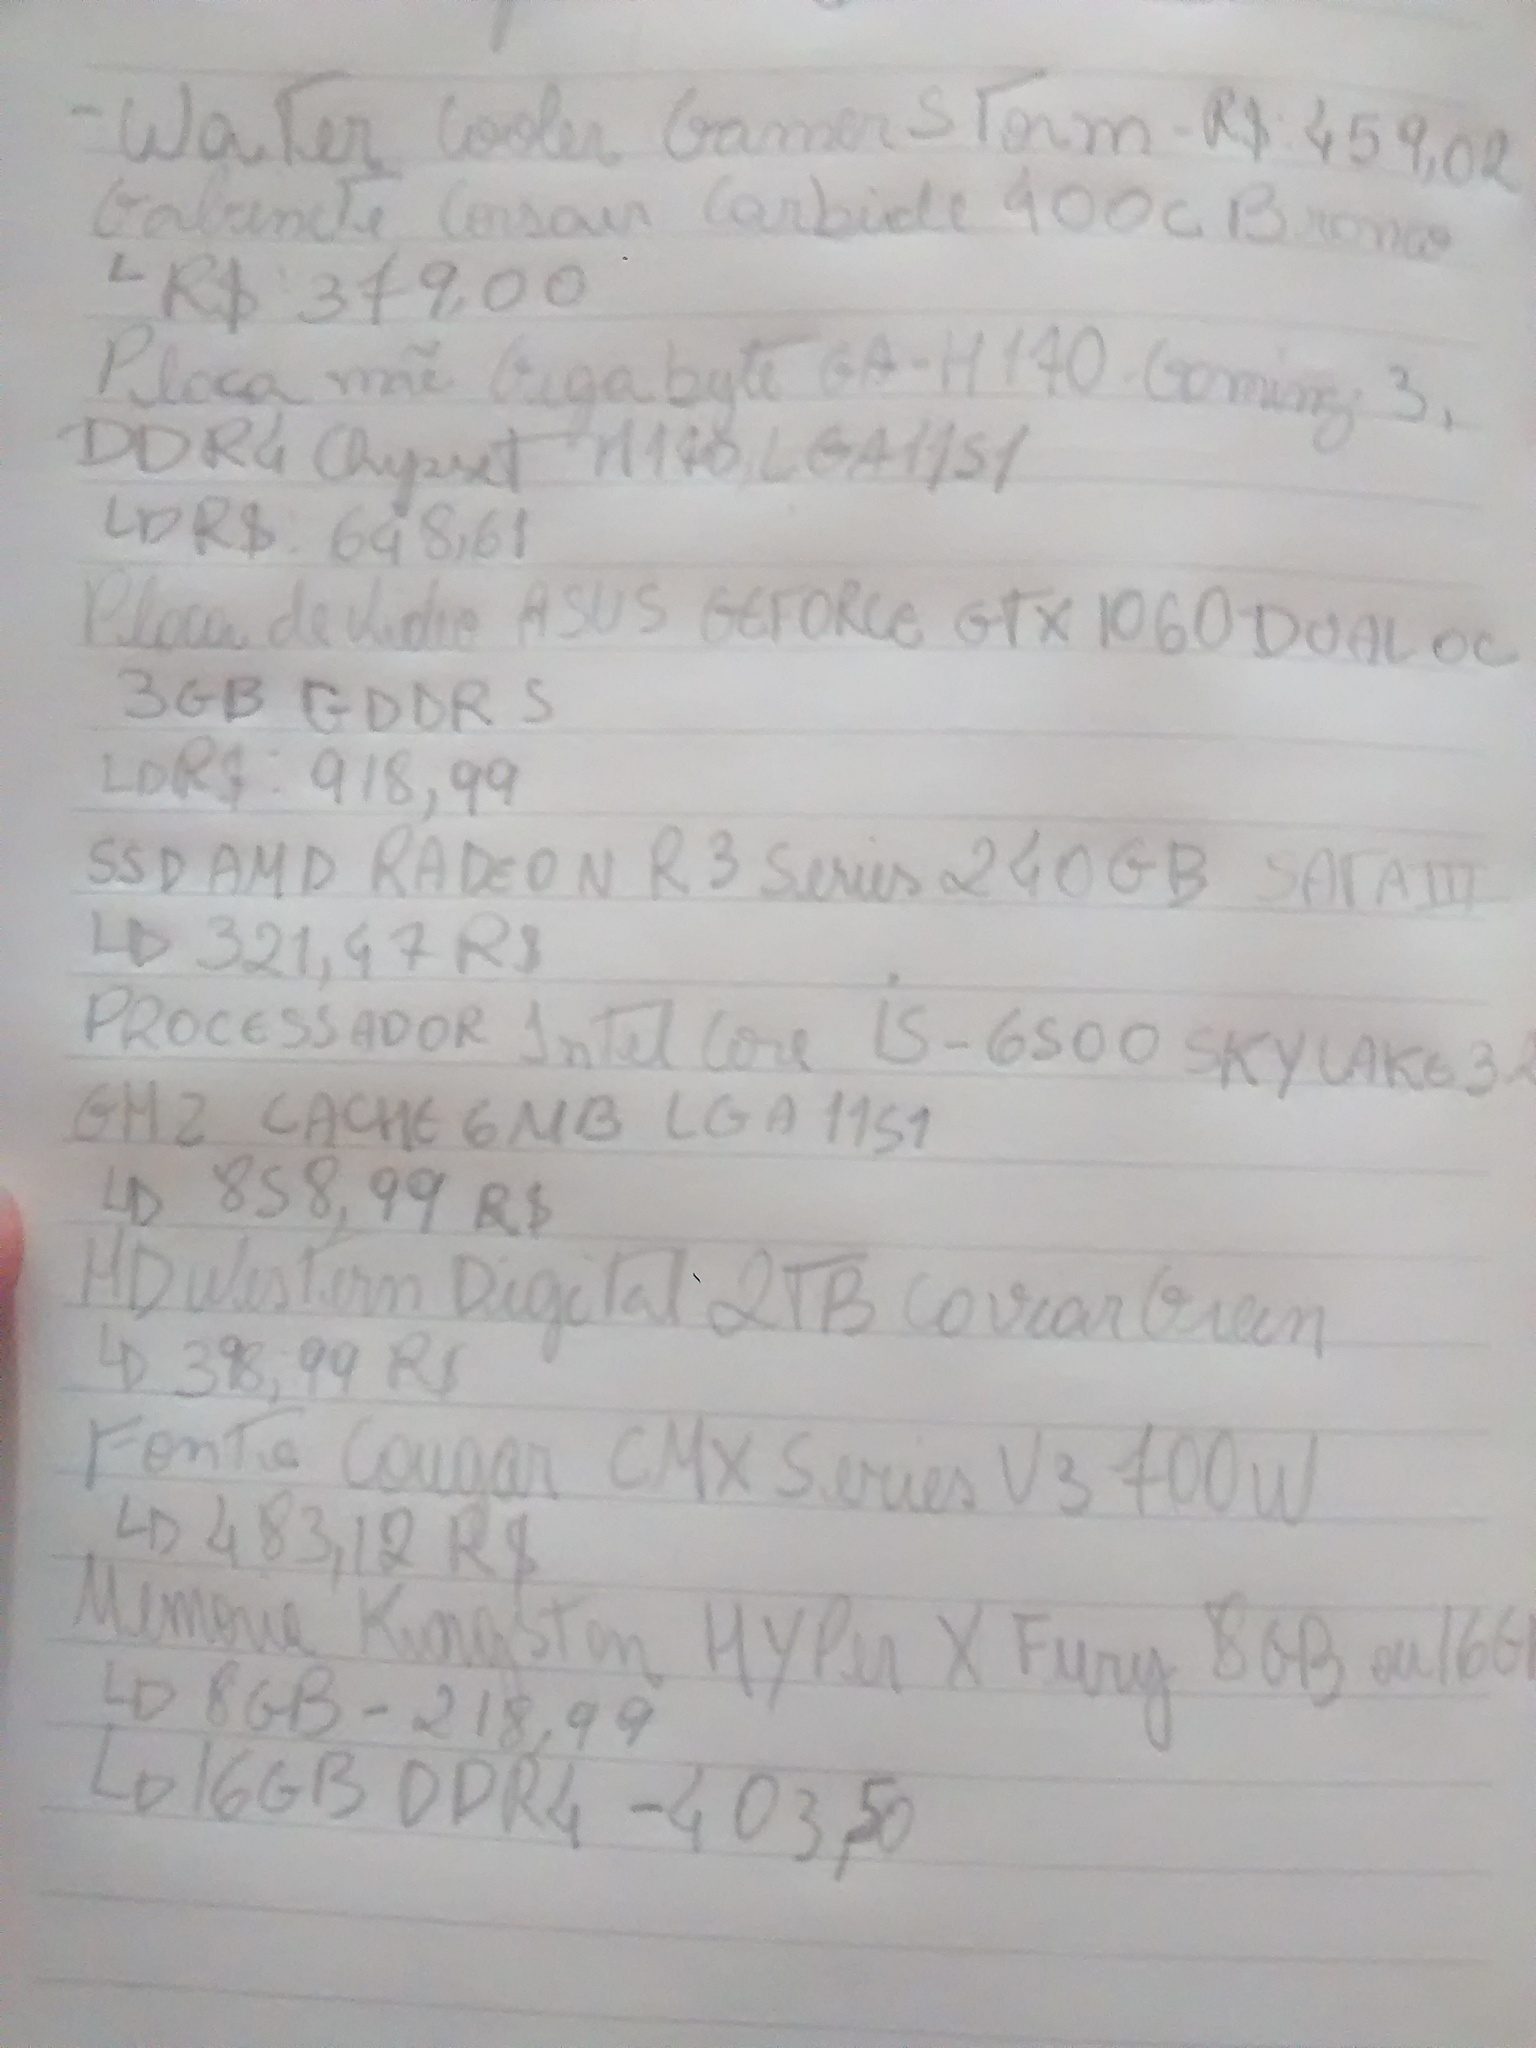 - Water Cooler Gamer Storm - R$: 459,02
Gabinete Corsair Carbide 400C Branco
R$: 379,00
Placa mãe Gigabyte GA-H170 Gaming 3,
DDR4 Chypset H170, LGA1151
R$: 648,61
Placa de vídeo ASUS GEFORCE GTX 1060 DUAL OC
3GB GDDR5
R$: 918,99
SSD AMD RADEON R3 Series 240GB SATA III
321,47 R$
PROCESSADOR Intel Core i5-6500 SKYLAKE 3.2
GHZ CACHE 6MB LGA 1151
858,99 R$
HD Western Digital 2TB Caviar Green
398,99 R$
Fonte Cougar CMX Series V3 700W
483,12 R$
Memória Kingston HYPer X Fury 8GB ou 16GB
8GB - 218,99
16GB DDR4 - 403,50